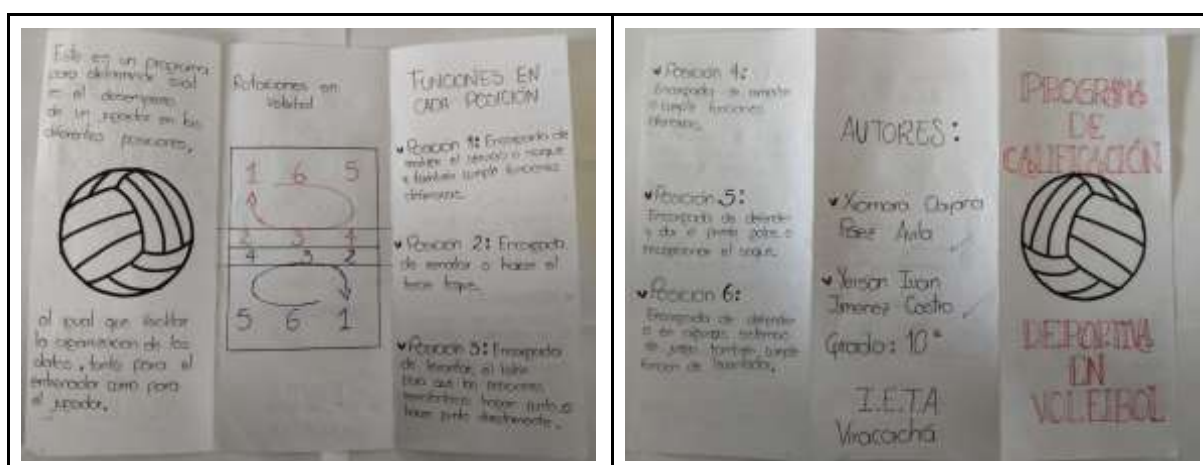 Este es un programa
para determinar cual
es el desempeño
de un jugador en las
diferentes posiciones,
al igual que facilitar
la organizacion de los
datos, tanto para el
entrenador como para
el jugador.
Rotaciones en
Voleibol
1 6 5
2 3 4
4 3 2
5 6 1
FUNCIONES EN
CADA POSICIÓN
Posición 1: Encargado de
realizar el servicio o saque
y también cumple funciones
defensivas.
Posición 2: Encargado
de rematar o hacer el
toque.
Posición 3: Encargado
de levantar el balón
para que las posiciones
hagan punto o
hacer punto directamente.
Posición 4:
Encargado de rematar
o cumple funciones
defensivas.
Posición 5:
Encargado de defender
y dar el primer golpe o
recepcionar el saque.
Posición 6:
Encargado de defender
o en algunos sistemas
de juego también cumple
función de levantador.
AUTORES:
Xiomara
Páez Avila
Yeison Ivan
Jimenez Castro
Grado: 10°
I.E.T.A
Viracachá
PROGRAMA
DE
CALIFICACIÓN
DEPORTIVA
EN
VOLEIBOL